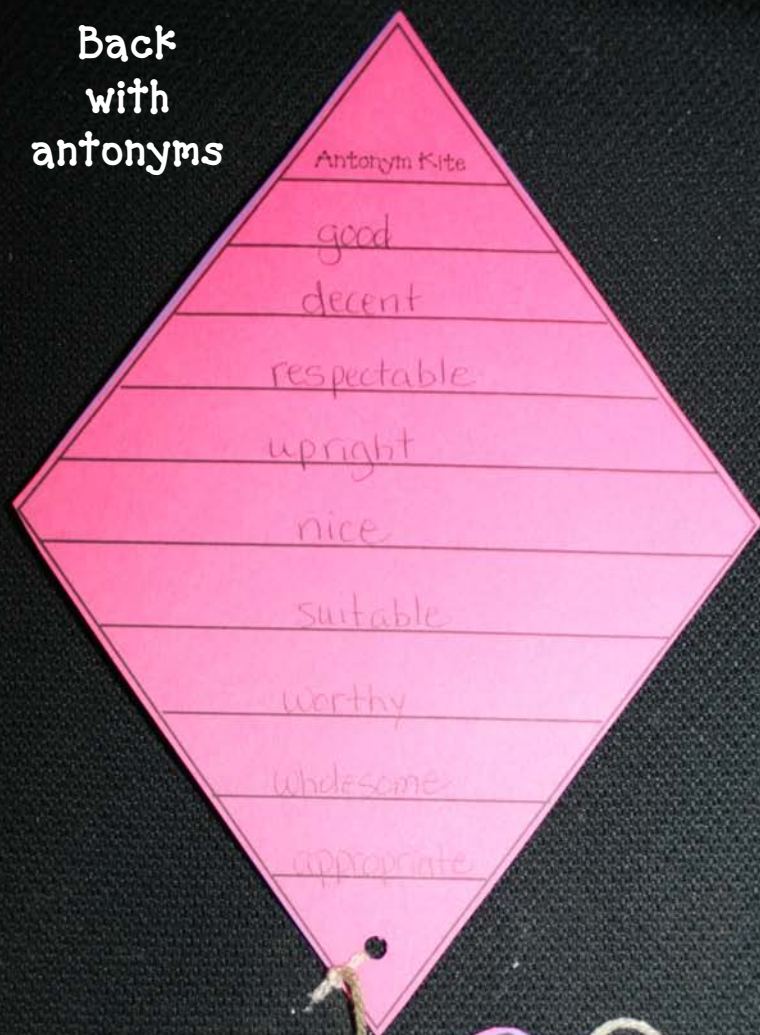 Back
with
antonyms
Antonym Kite
good
decent
respectable
upright
nice
suitable
worthy
wholesome
appropriate